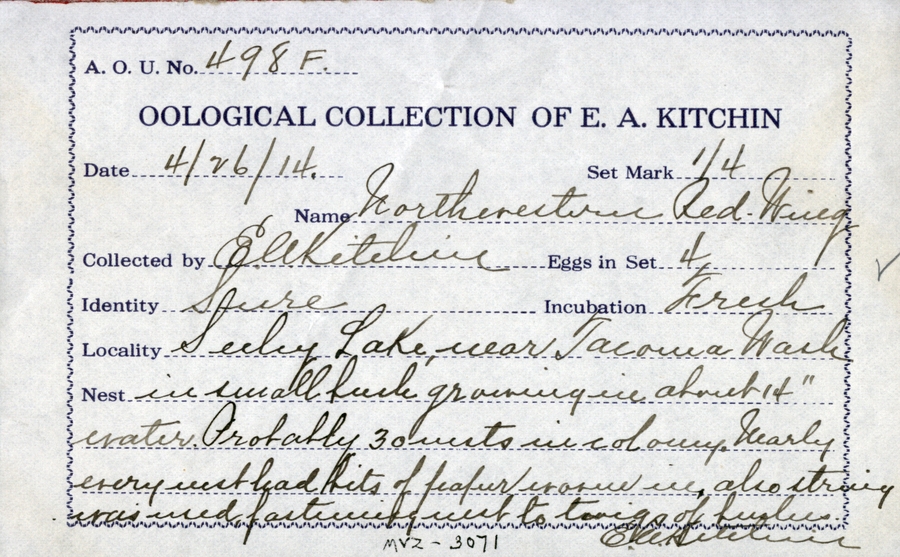 A. O. U. No. 498 F.
OOLOGICAL COLLECTION OF E. A. KITCHIN
Date 4/26/14. Set Mark 1/4
Name Northwestern Red-Wing
Collected by E.A.Kitchin Eggs in Set 4
Identity Sure Incubation Fresh
Locality Seeley Lake, near Tacoma Wash
Nest in small bush growing in about 14"
water. Probably 30 nests in colony. Nearly
every nest had bits of paper wove in, also string
was used fastening nest to twigs of bushes.
E.A.Kitchin
MVZ - 3071